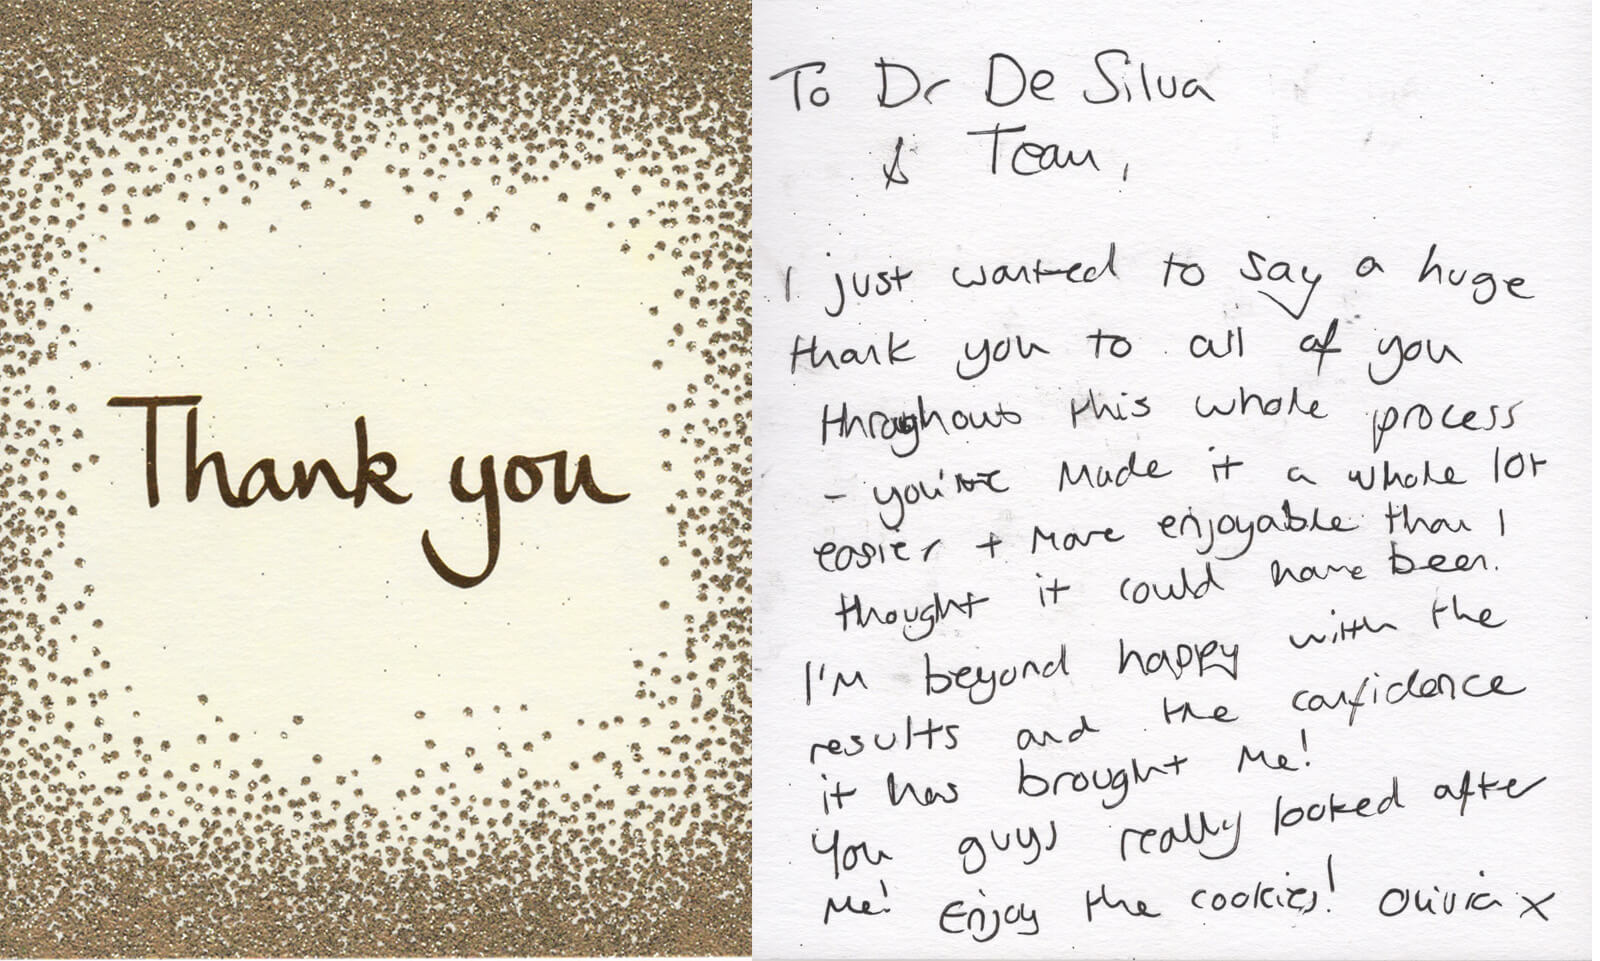 Thank you
To Dr De Silva
& Team,
I just wanted to say a huge
thank you to all of you
throughout this whole process
- you've made it a whole lot
easier + more enjoyable than I
thought it could have been.
I'm beyond happy with the
results and the confidence
it has brought me!
You guys really looked after
me! Enjoy the cookies! Olivia x